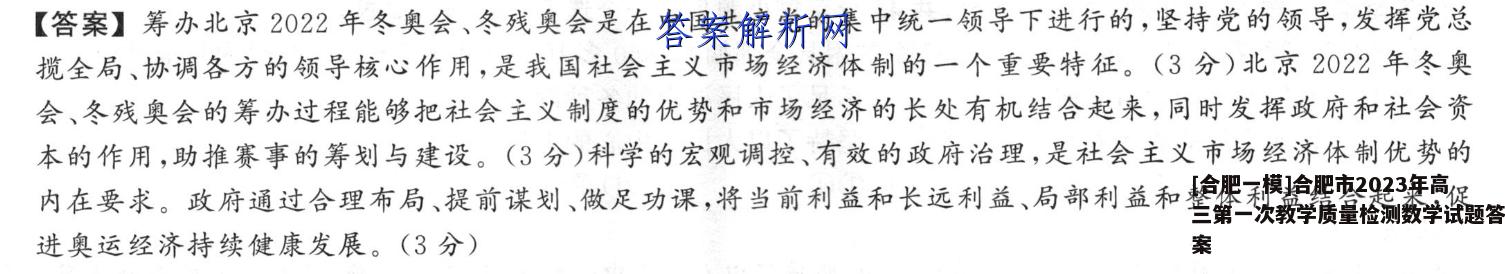 【答案】筹办北京 2022 年冬奥会、冬残奥会是在中国共产党的集中统一领导下进行的,坚持党的领导,发挥党总
答案解析网
揽全局、协调各方的领导核心作用,是我国社会主义市场经济体制的一个重要特征。(3 分)北京 2022 年冬奥
会、冬残奥会的筹办过程能够把社会主义制度的优势和市场经济的长处有机结合起来,同时发挥政府和社会资
本的作用,助推赛事的筹划与建设。(3 分)科学的宏观调控、有效的政府治理,是社会主义市场经济体制优势的
内在要求。政府通过合理布局、提前谋划、做足功课,将当前利益和长远利益、局部利益和整体利益结合起来,促
进奥运经济持续健康发展。(3 分)
[合肥一模]合肥市2023年高
三第一次教学质量检测数学试题答
案